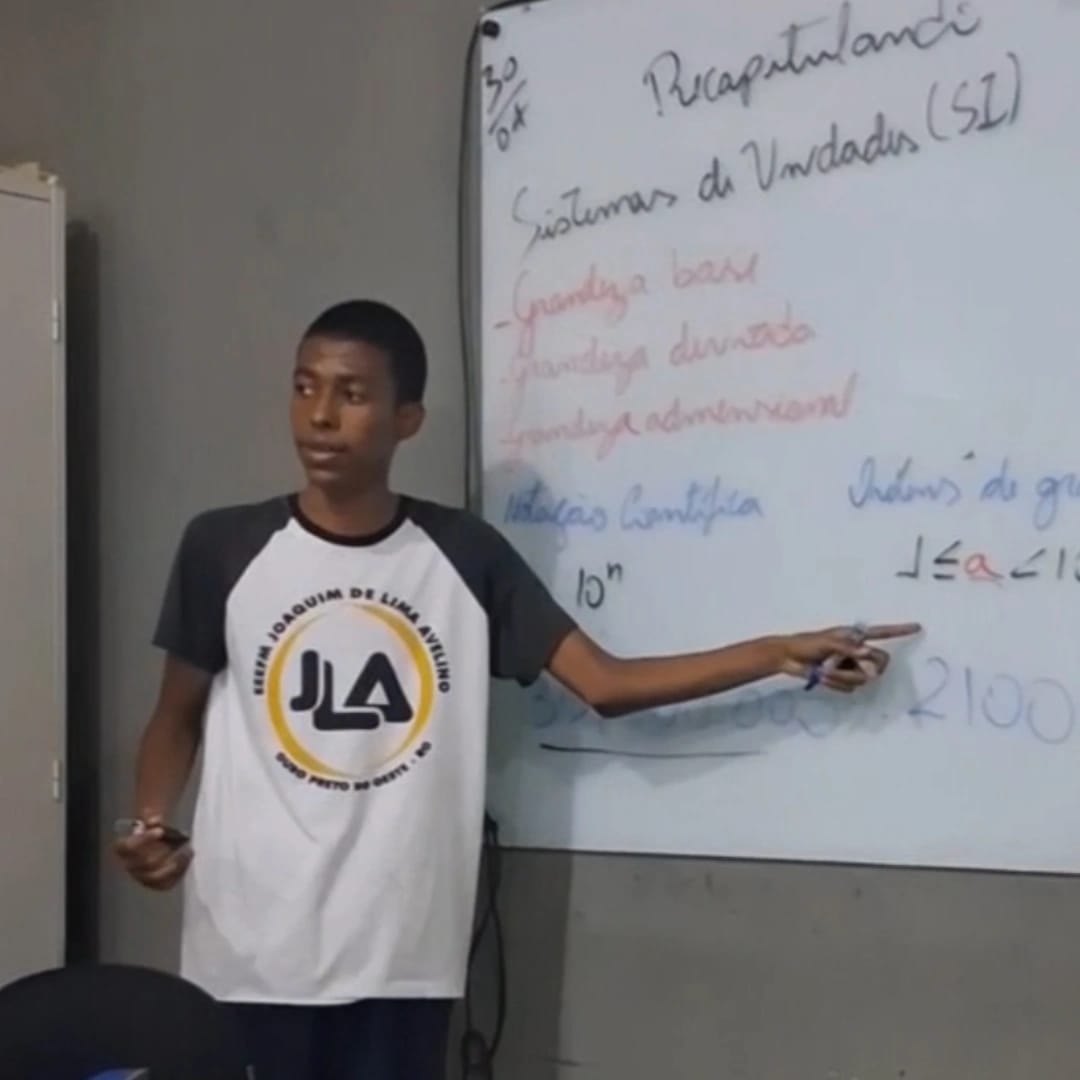 30/0x
Recapitulando
Sistemas de Unidades (SI)
- Grandeza base
- Grandeza derivada
- Grandeza admensional
Notação Científica
Ordens de
10ⁿ
1 ≤ a < 10
2100
EEEFM JOAQUIM DE LIMA AVELINO
JLA
OURO PRETO DO OESTE - RO